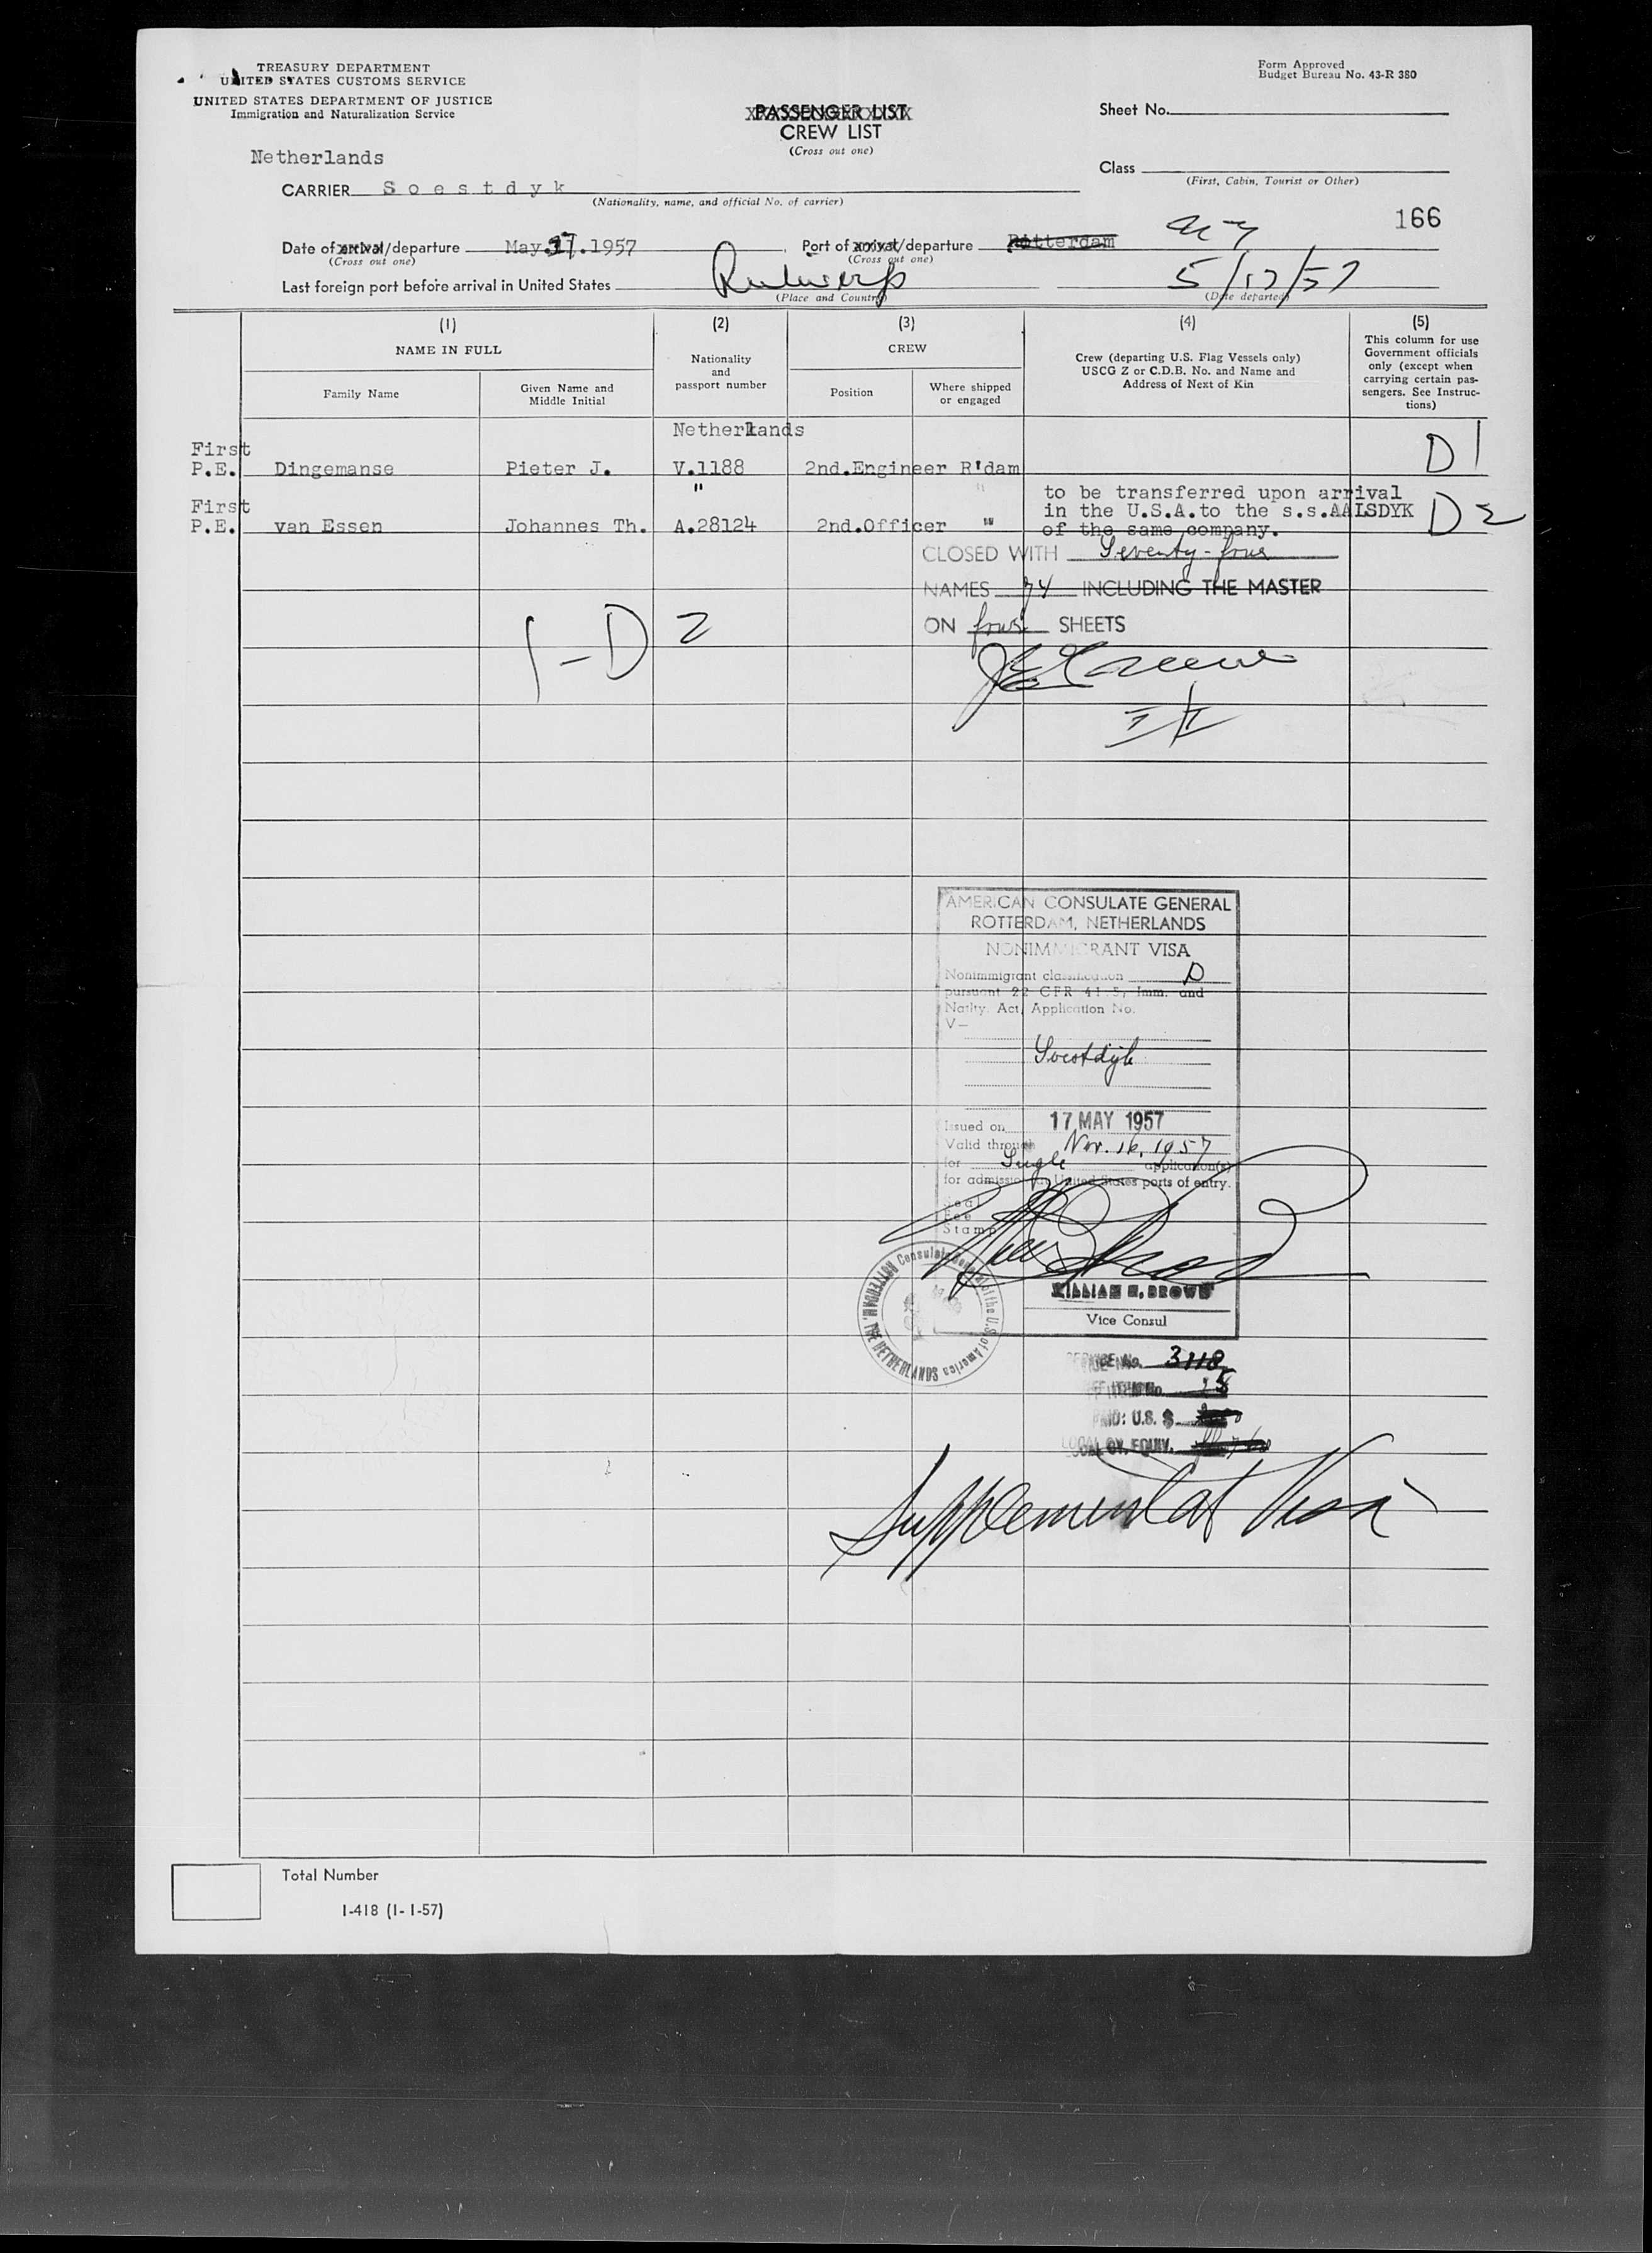 TREASURY DEPARTMENT
UNITED STATES CUSTOMS SERVICE
UNITED STATES DEPARTMENT OF JUSTICE
Immigration and Naturalization Service
Form Approved
Budget Bureau No. 43-R 380
PASSENGER LIST
CREW LIST
(Cross out one)
Sheet No.
Class
(First, Cabin, Tourist or Other)
Netherlands
CARRIER S o e s t d y k
(Nationality, name, and official No. of carrier)
166
Date of arrival/departure May.17.1957
(Cross out one)
Port of arrival/departure Rotterdam
(Cross out one)
Last foreign port before arrival in United States Antwerp 5/17/57
(Place and Country)
(Date departed)
(1)
NAME IN FULL
Family Name
Given Name and
Middle Initial
(2)
Nationality
and
passport number
(3)
CREW
Position
Where shipped
or engaged
(4)
Crew (departing U.S. Flag Vessels only)
USCG Z or C.D.B. No. and Name and
Address of Next of Kin
(5)
This column for use
Government officials
only (except when
carrying certain pas-
sengers. See Instruc-
tions)
Netherlands
First
P.E. Dingemanse Pieter J. V.1188 2nd.Engineer R'dam D1
" "
First
P.E. van Essen Johannes Th. A.28124 2nd.Officer " D2
to be transferred upon arrival
in the U.S.A.to the s.s.AALSDYK
of the same company.
CLOSED WITH Seventy-four
NAMES 74 INCLUDING THE MASTER
ON four SHEETS
1-D 2
AMERICAN CONSULATE GENERAL
ROTTERDAM, NETHERLANDS
NONIMMIGRANT VISA
Nonimmigrant classification D
pursuant 22 CFR 41.5, Imm. and
Natlty. Act, Application No.
V-
Soestdijk
Issued on 17 MAY 1957
Valid through Nov. 16, 1957
for Single application(s)
for admission at United States ports of entry.
Seal
Fee
Stamp
Consulate General of the U.S. of America
ROTTERDAM, THE NETHERLANDS
WILLIAM H. BROWN
Vice Consul
SERVICE No. 3118
PAID: U.S. $
LOCAL CY. EQUIV.
Supplemental Visa
Total Number
I-418 (1-1-57)